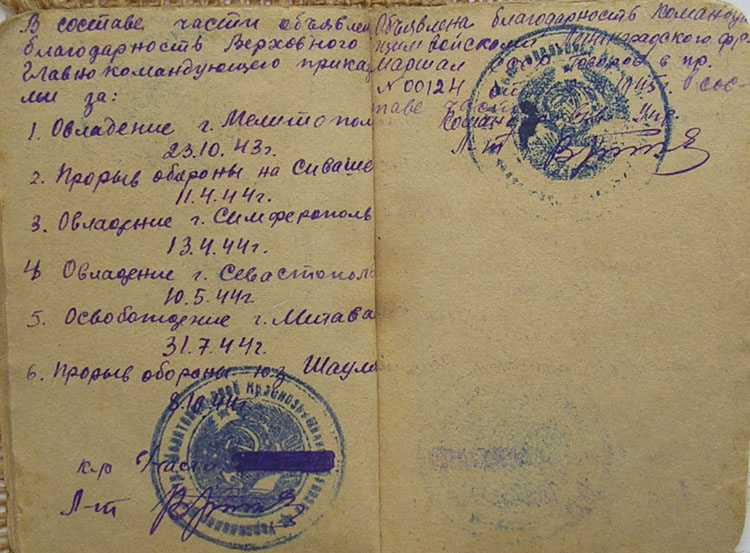 В составе части объявлен
благодарность Верховного
Главнокомандующего приказа
ми за:
1. Овладение г. Мелитопол
23.10.43г.
2. Прорыв обороны на Сиваше
11.4.44г.
3. Овладение г. Симферополь
13.4.44г.
4 Овладение г. Севастополь
10.5.44г
5. Освобождение г. Митава
31.7.44г.
6. Прорыв обороны ю.з Шауля
8.10.44г
к-р части
Л-т
Объявлена благодарность Команду
щим войсками Ленинградского фр.
Маршал Говоров в пр.
№ 00124 1945 г в сос-
таве части
Л-т